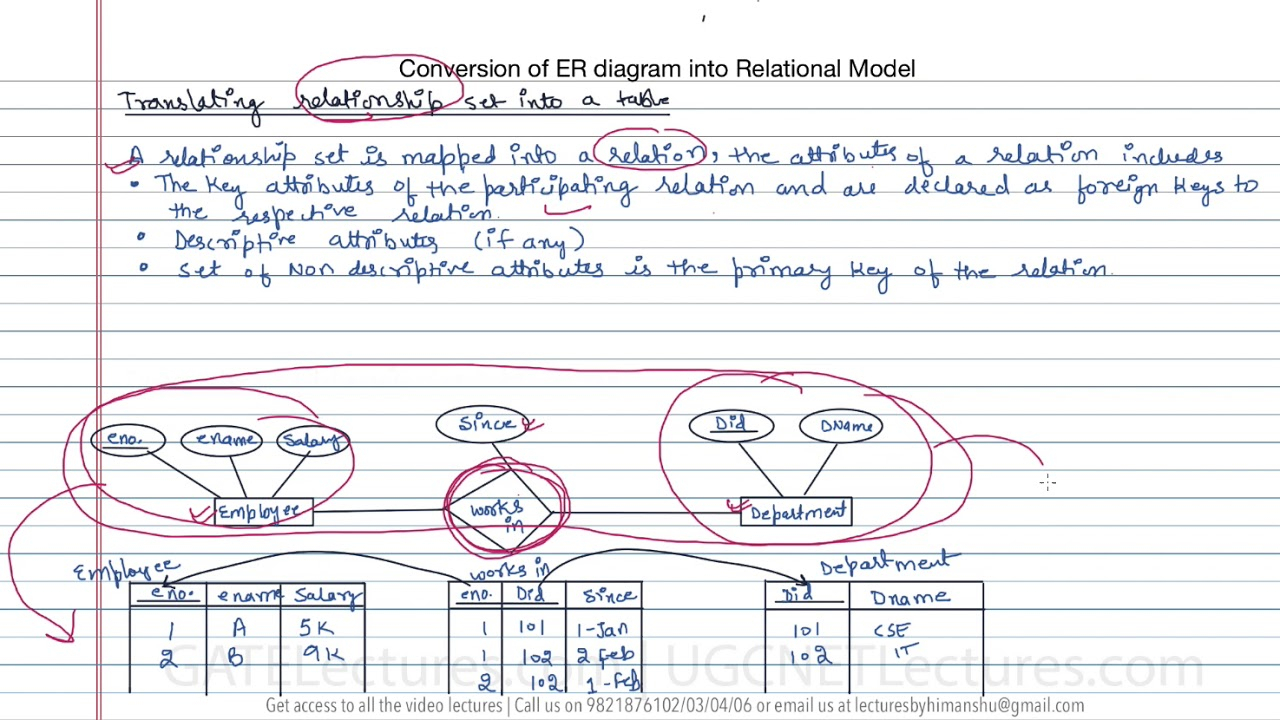 Conversion of ER diagram into Relational Model
Translating relationship set into a table
A relationship set is mapped into a relation, the attributes of a relation includes
• The Key attributes of the participating relation and are declared as foreign Keys to
the respective relation.
• Descriptive attributes (if any)
• Set of Non descriptive attributes is the primary Key of the relation.
eno. ename Salary Since Did DName
Employee works in Department
Employee works in Department
eno. ename Salary eno. Did Since Did Dname
1 A 5K 1 101 1-Jan 101 CSE
2 B 9K 1 102 2 Feb 102 IT
2 102 1-Feb
GATELectures.com | UGCNETLectures.com
Get access to all the video lectures | Call us on 9821876102/03/04/06 or email us at lecturesbyhimanshu@gmail.com